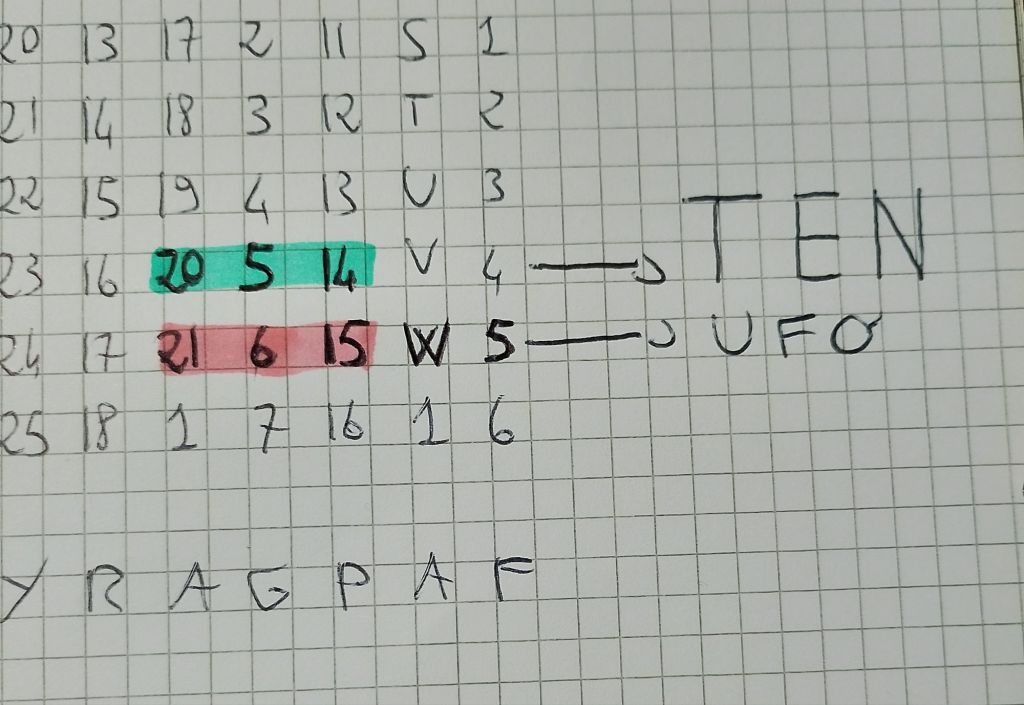 20 13 17 2 11 S 1
21 14 18 3 12 T 2
22 15 19 4 13 U 3
23 16 20 5 14 V 4 → TEN
24 17 21 6 15 W 5 → UFO
25 18 1 7 16 1 6
Y R A G P A F